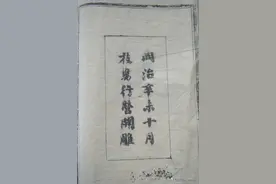 同治辛未十月
撫粵行營開雕